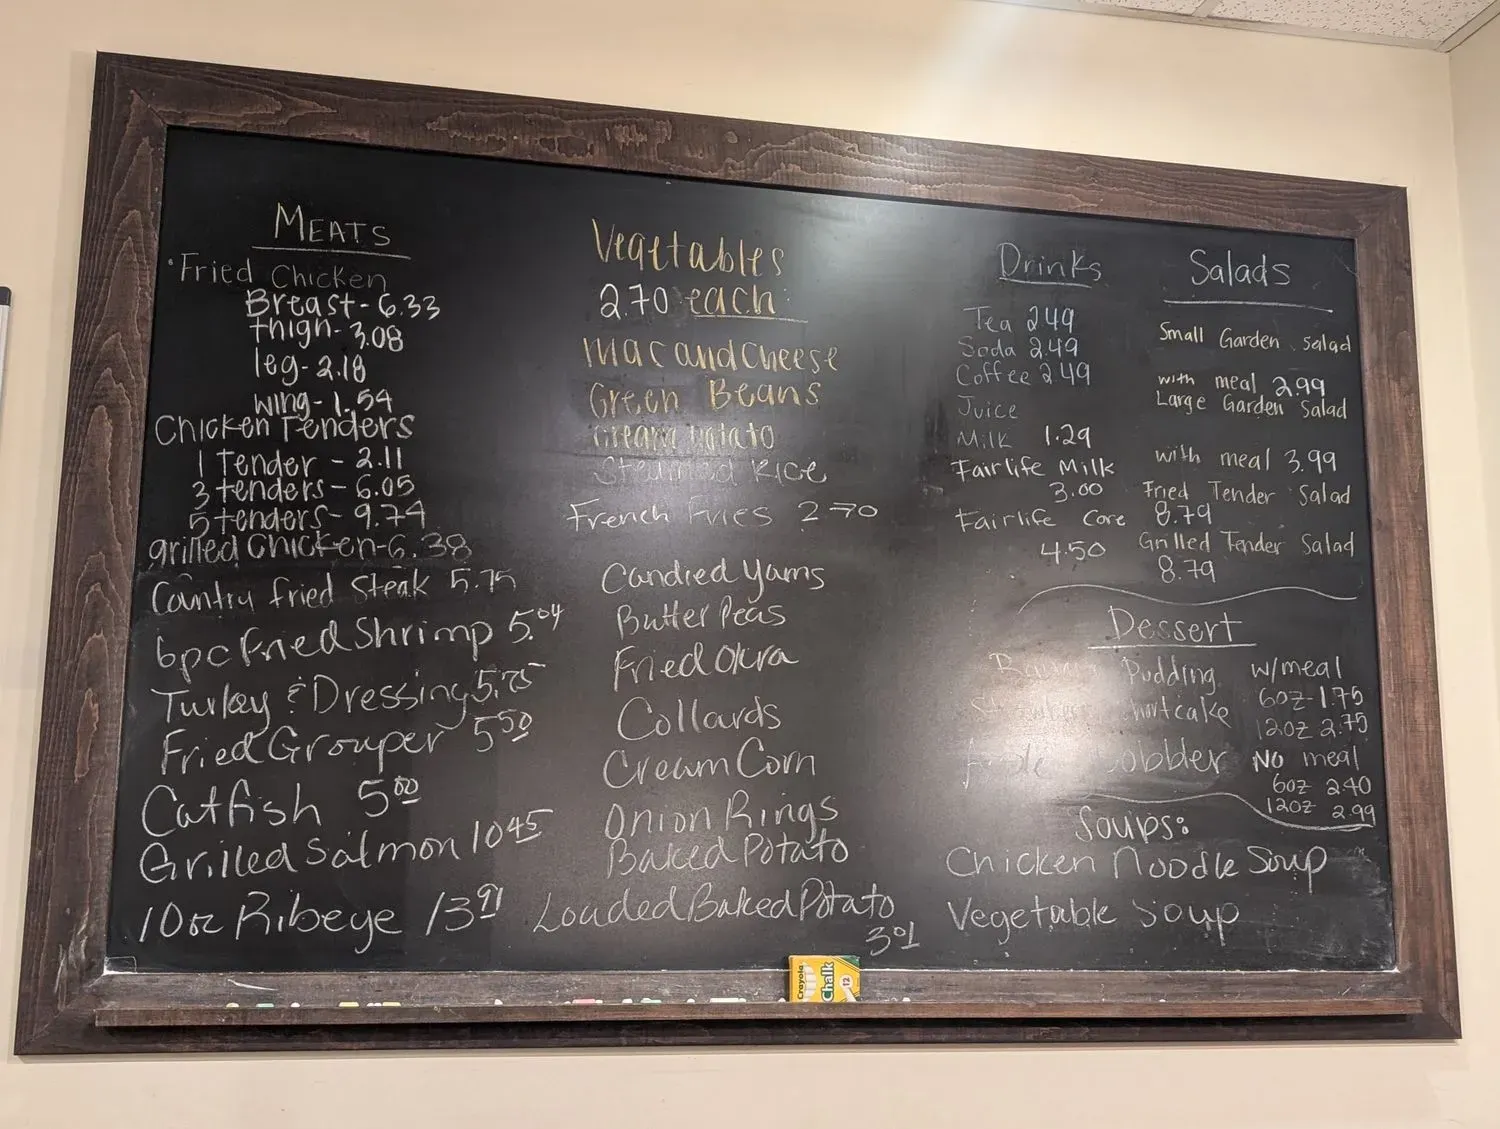 MEATS
Fried Chicken
Breast - 6.33
thigh - 3.08
leg - 2.18
wing - 1.54
Chicken Tenders
1 Tender - 2.11
3 tenders - 6.05
5 tenders - 9.74
grilled Chicken - 6.38
Country fried Steak 5.75
6pc Fried Shrimp 5.04
Turkey & Dressing 5.75
Fried Grouper 5 50
Catfish 5 00
Grilled Salmon 10 45
10oz Ribeye 13 91
Vegetables
2.70 each
Mac and Cheese
Green Beans
Cream Potato
Steamed Rice
French Fries 2 70
Candied Yams
Butter Peas
Fried Okra
Collards
Cream Corn
Onion Rings
Baked Potato
Loaded Baked Potato
3 01
Drinks
Tea 2.49
Soda 2.49
Coffee 2.49
Juice
Milk 1.29
Fairlife Milk
3.00
Fairlife Core
4.50
Salads
Small Garden salad
with meal 2.99
Large Garden Salad
with meal 3.99
Fried Tender Salad
8.79
Grilled Tender Salad
8.79
Dessert
Pudding w/meal
6oz - 1.75
Shortcake
12oz 2.75
Cobbler No meal
6oz 2.40
12oz 2.99
Soups:
Chicken Noodle Soup
Vegetable Soup
Crayola
Chalk
12